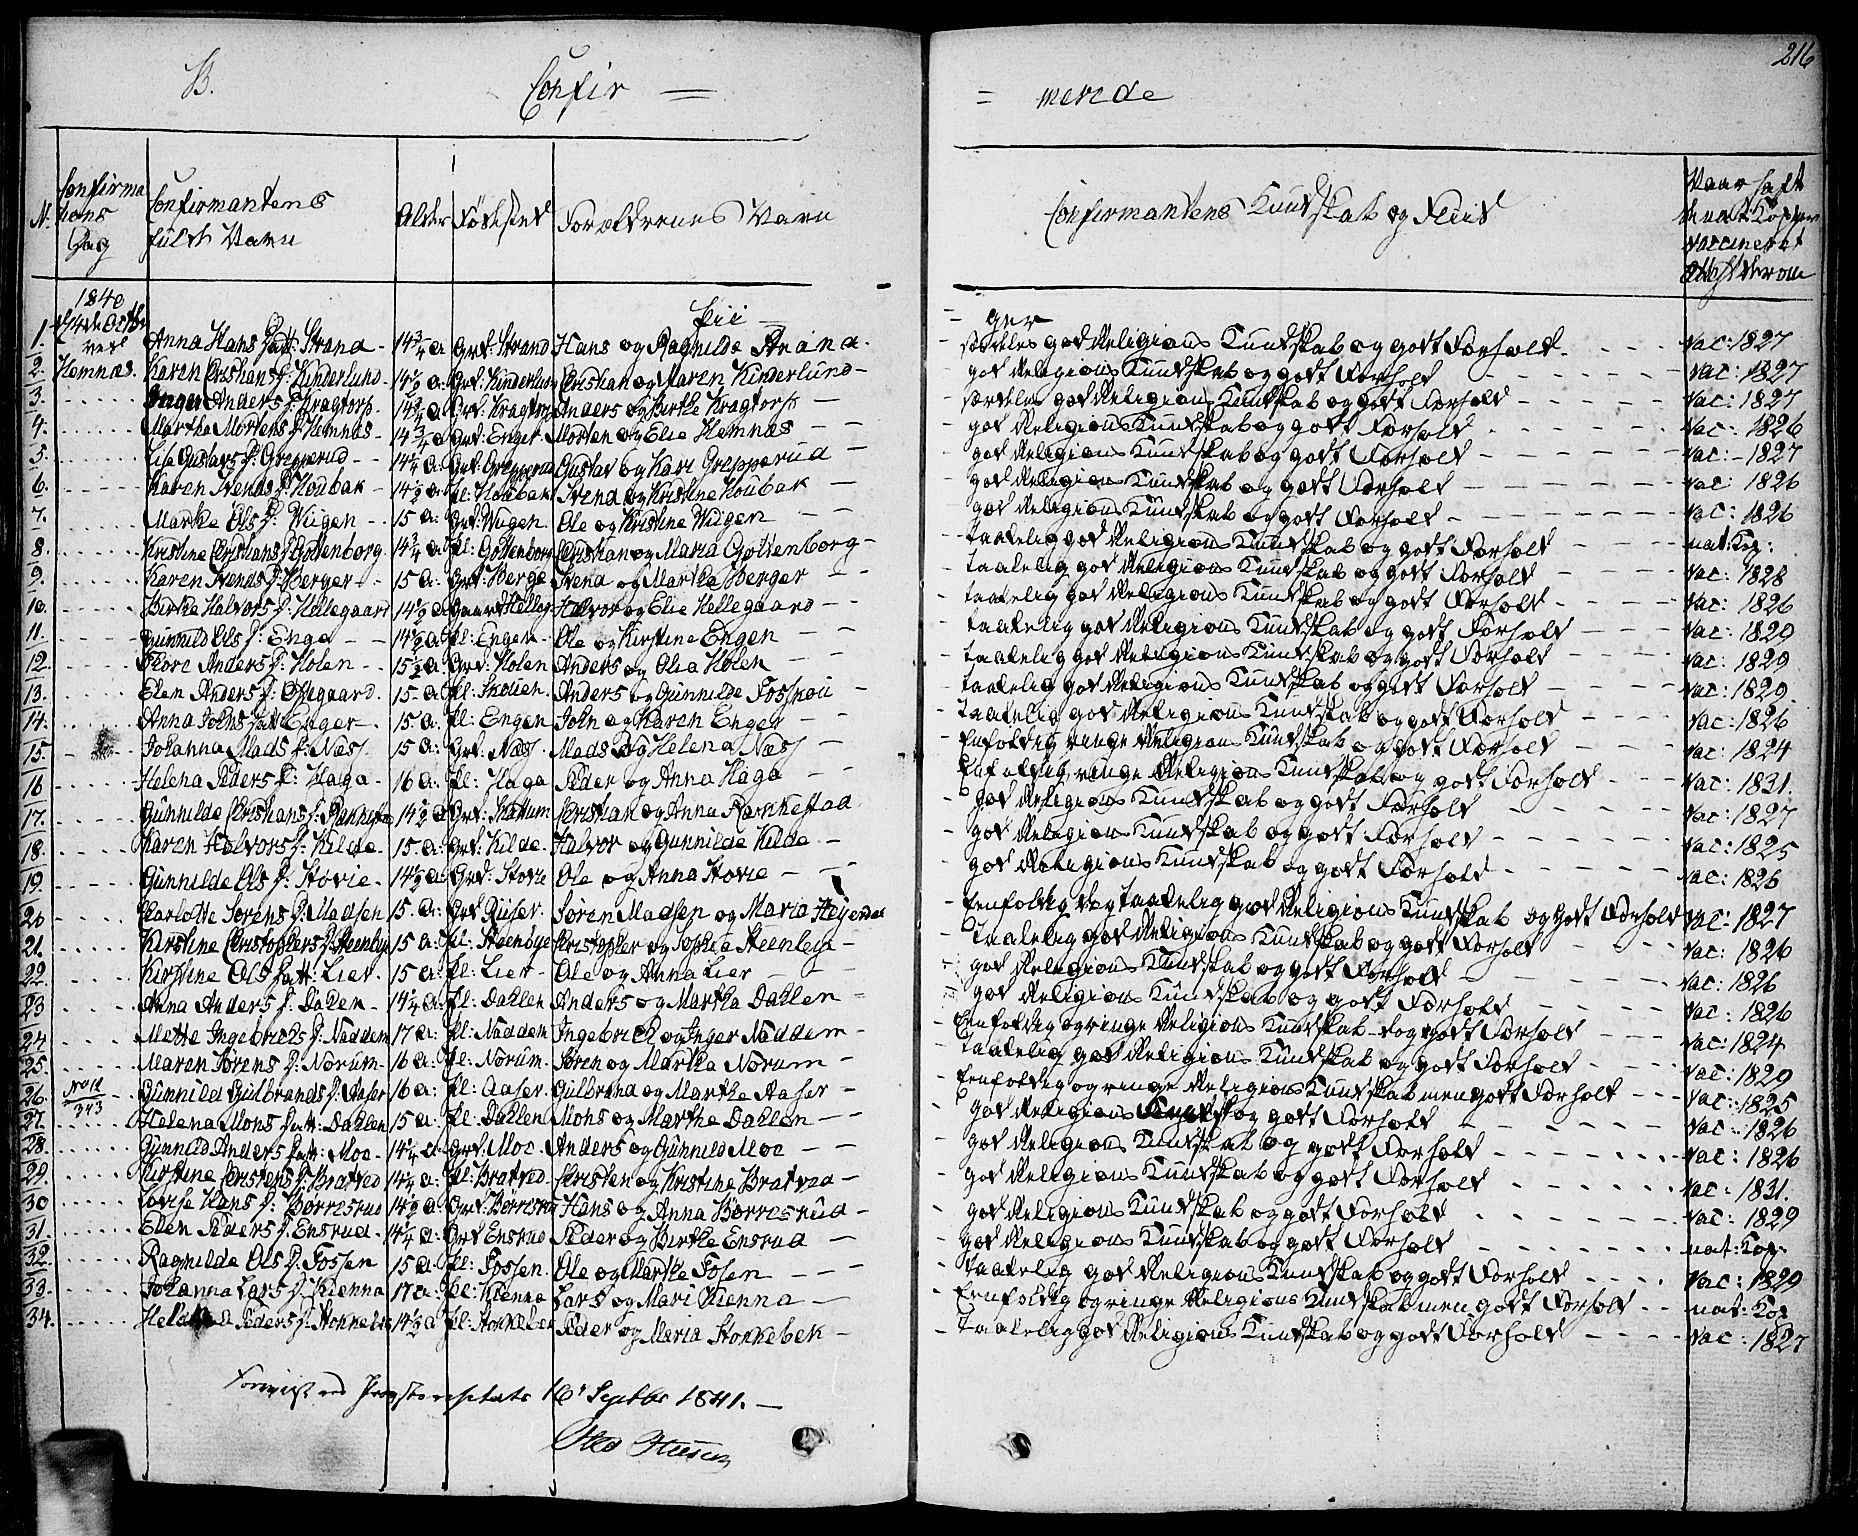 216
B. Confir = = merede
N. Confirmations Dag | Confirmantens fulde Navn | Alder | Fødested | Forældrenes Navn | Confirmantens Kundskab og Flid | Naar havt Kopper vaccineret
Piger
1840 ved Hemnæs
1. Anna Hans Datt: Strand - 14 3/4 a Grd: Strand Hans og Ragnilde Strand - særdeles god Religions Kundskab og godt Forhold - Vac: 1827
2. Karen Cristians D: Kinderlund - 14 1/2 a: Grd: Kinderlund Cristian og Maren Kinderlund - god Religions Kundskab og godt Forhold - Vac: 1827
3. Inger Anders D: Kragtorp 14 3/4 a Grd: Kragtorp Anders og Birthe Kragtorp - særdeles god Religions Kundskab og godt Forhold - Vac: 1827
4. Martha Mortens D: Hemnæs - 14 3/4 a Grd: Enger Morten og Elie Hemnæs - god Religions Kundskab og godt Forhold - Vac: 1826
5. Lise Gustavs D: Grepperud - 14 1/4 a. Grd: Grepperud Gustav og Kari Grepperud - god Religions Kundskab og godt Forhold - Vac: 1827
6. Karen Svends D: Houbak - 14 1/2 a pl: Houbak Svend og Kristine Houbak - god Religions Kundskab og godt Forhold - Vac: 1826
7. Marthe Ols D: Wiigen - 15 a: Grd: Wiigen Ole og Kristine Wiigen - god Religions Kundskab og godt Forhold - Vac: 1826
8. Kristine Cristians D: Gottenborg. 14 3/4 a pl: Gottenborg Cristian og Maria Gottenborg - taalelig god Religions Kundskab og godt Forhold - nat: Kop:
9. Karen Svends D: Berger - 15 a: Grd: Berge Svend og Martha Berger - taalelig god Religions Kundskab og godt Forhold - Vac: 1828
10. Birthe Halvors D: Hellegaard 14 1/2 a Halvor og Elie Hellegaard - taalelig god Religions Kundskab og godt Forhold - Vac: 1826
11. Gunnild Ols D: Enge - 14 1/2 a pl: Engen - Ole og Kirstine Engen - taalelig god Religions Kundskab og godt Forhold - Vac: 1829
12. Thore Anders D: Holen - 15 1/2 a Grd: Holen Anders og Olea Holen - taalelig god Religions Kundskab og godt Forhold - Vac: 1829
13. Elen Anders D: 15 - a: pl: Skouen Anders og Gunnilde Fosskou - taalelig god Religions Kundskab og godt Forhold - Vac: 1829
14. Anna Johns Datt Enger - 15 a: pl: Engen John og Karen Enger - taalelig god Religions Kundskab og godt Forhold - Vac: 1826
15. Johanna Mads D: Næs. 15 a: Grd: Næs. Mads og Helena Næs - Enfoldig ringe Religions Kundskab og godt Forhold - Vac: 1824
16 Helena Peders D: Haga - 16 a: pl: Haga Peder og Anna Haga - Enfoldig, ringe Religions Kundskab og godt Forhold - Vac: 1831.
17. Gunnilde Cristians D: Ramkestad 14 1/2 a Grd: Cristian og Anna Ramkestad god Religions Kundskab og godt Forhold - Vac: 1827
18. Karen Halvors D: Kilde - 15 a: Grd: Kilde. Halvor og Gunnilde Kilde - god Religions Kundskab og godt Forhold - Vac: 1825
19. Gunnilde Ols D: Hovie - 14 1/2 a Grd: Hovie Ole og Anna Hovie - god Religions Kundskab og godt Forhold - Vac: 1826
20 Charlotte Sørens D: Madsen 15. a: Grd Søren Madsen og Maria - Eenfoldig dog taalelig god Religions Kundskab og godt Forhold Vac: 1827
21. Kirstine Cristophers D: Steenbye 15 a: pl: Steenbye Cristopher og Sophie Steenbye - taalelig god Religions Kundskab og godt Forhold - Vac: 1826
22. Kirstine Ols Datt: Lier - 15 a: pl: Lier - Ole og Anna Lier - god Religions Kundskab og godt Forhold - Vac: 1826
23 Anna Anders D: Dahlen - 14 1/4 a: pl: Dahlen Anders og Martha Dahlen - god Religions Kundskab og godt Forhold - Vac: 1826
24 Mette Ingebricts D: Naddem 17 a: pl: Naddem Ingebrict og Inger Naddem - Eenfoldig og ringe Religions Kundskab - dog godt Forhold - Vac: 1824
25. Maren Sørens D: Norum - 16 a: pl: Norum - Søren og Martha Norum - taalelig god Religions Kundskab og godt Forhold - Vac: 1829
26. Gunnild Gulbrands D: Aaser 16 a: pl: Aaser - Gulbrand og Marthe Aaser - Eenfoldig og ringe Religions Kundskab men godt Forhold - Vac: 1825
27. 343 Helena Mons Datt: Dahlen 15 a: pl: Dahlen Mons og Marthe Dahlen - god Religions Kundskab og godt Forhold - Vac: 1826
28. Gunnild Anders Datt: Moe - 14 1/4 a Grd: Moe - Anders og Gunnild Moe - god Religions Kundskab og godt Forhold - Vac: 1826
29. Kirstine Cristens D: Bratved 14 1/4 a: pl: Bratved Cristen og Kristine Bratved - god Religions Kundskab og godt Forhold - Vac: 1831.
30 Lovise Hans D: Børresrud 14 1/2 a Grd: Børresrud Hans og Anna Børresrud - god Religions Kundskab og godt Forhold - Vac: 1829
31. Elen Peders D: Ensrud - 14 1/4 a Grd Ensrud Peder og Birthe Ensrud - god Religions Kundskab og godt Forhold - nat: Kop
32. Ragnilde Ols D: Fossen 15 a: pl: Fossen. Ole og Marthe Fossen - taalelig god Religions Kundskab og godt Forhold - Vac: 1829
33. Johanna Lars D: Kienna 17 a: pl: Kienna Lars og Mari Kienna - Eenfoldig og ringe Religions Kundskab men godt Forhold - nat: Kop
34. Helena Peders D: Stokkebek 14 1/2 a pl: Stokkebek Peder og Maria Stokkebek - taalelig god Religions Kundskab og godt Forhold - Vac: 1827
Foreviist ved Provstevisitats 16' Septbr 1841. -